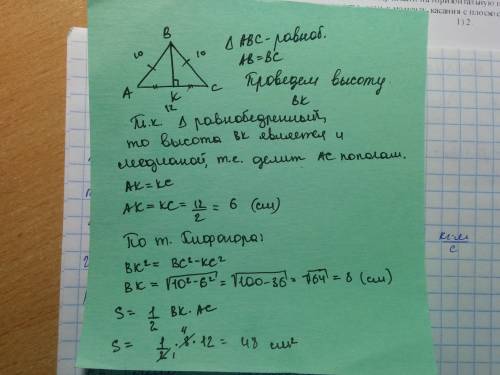 на горизонтальную п
касания с плоскос
1) 2
B
10
10
A
K
C
12
Δ ABC - равноб.
AB = BC
Проведем высоту
BK
Т.к. Δ равнобедренный,
то высота BK является и
медианой, т.е. делит AC пополам.
AK = KC
AK = KC = 12/2 = 6 (см)
По т. Пифагора:
BK² = BC² - KC²
BK = √10² - 6² = √100 - 36 = √64 = 8 (см)
S = 1/2 BK · AC
4
S = 1/2 · 8 · 12 = 48 см²
1
кг·м
с